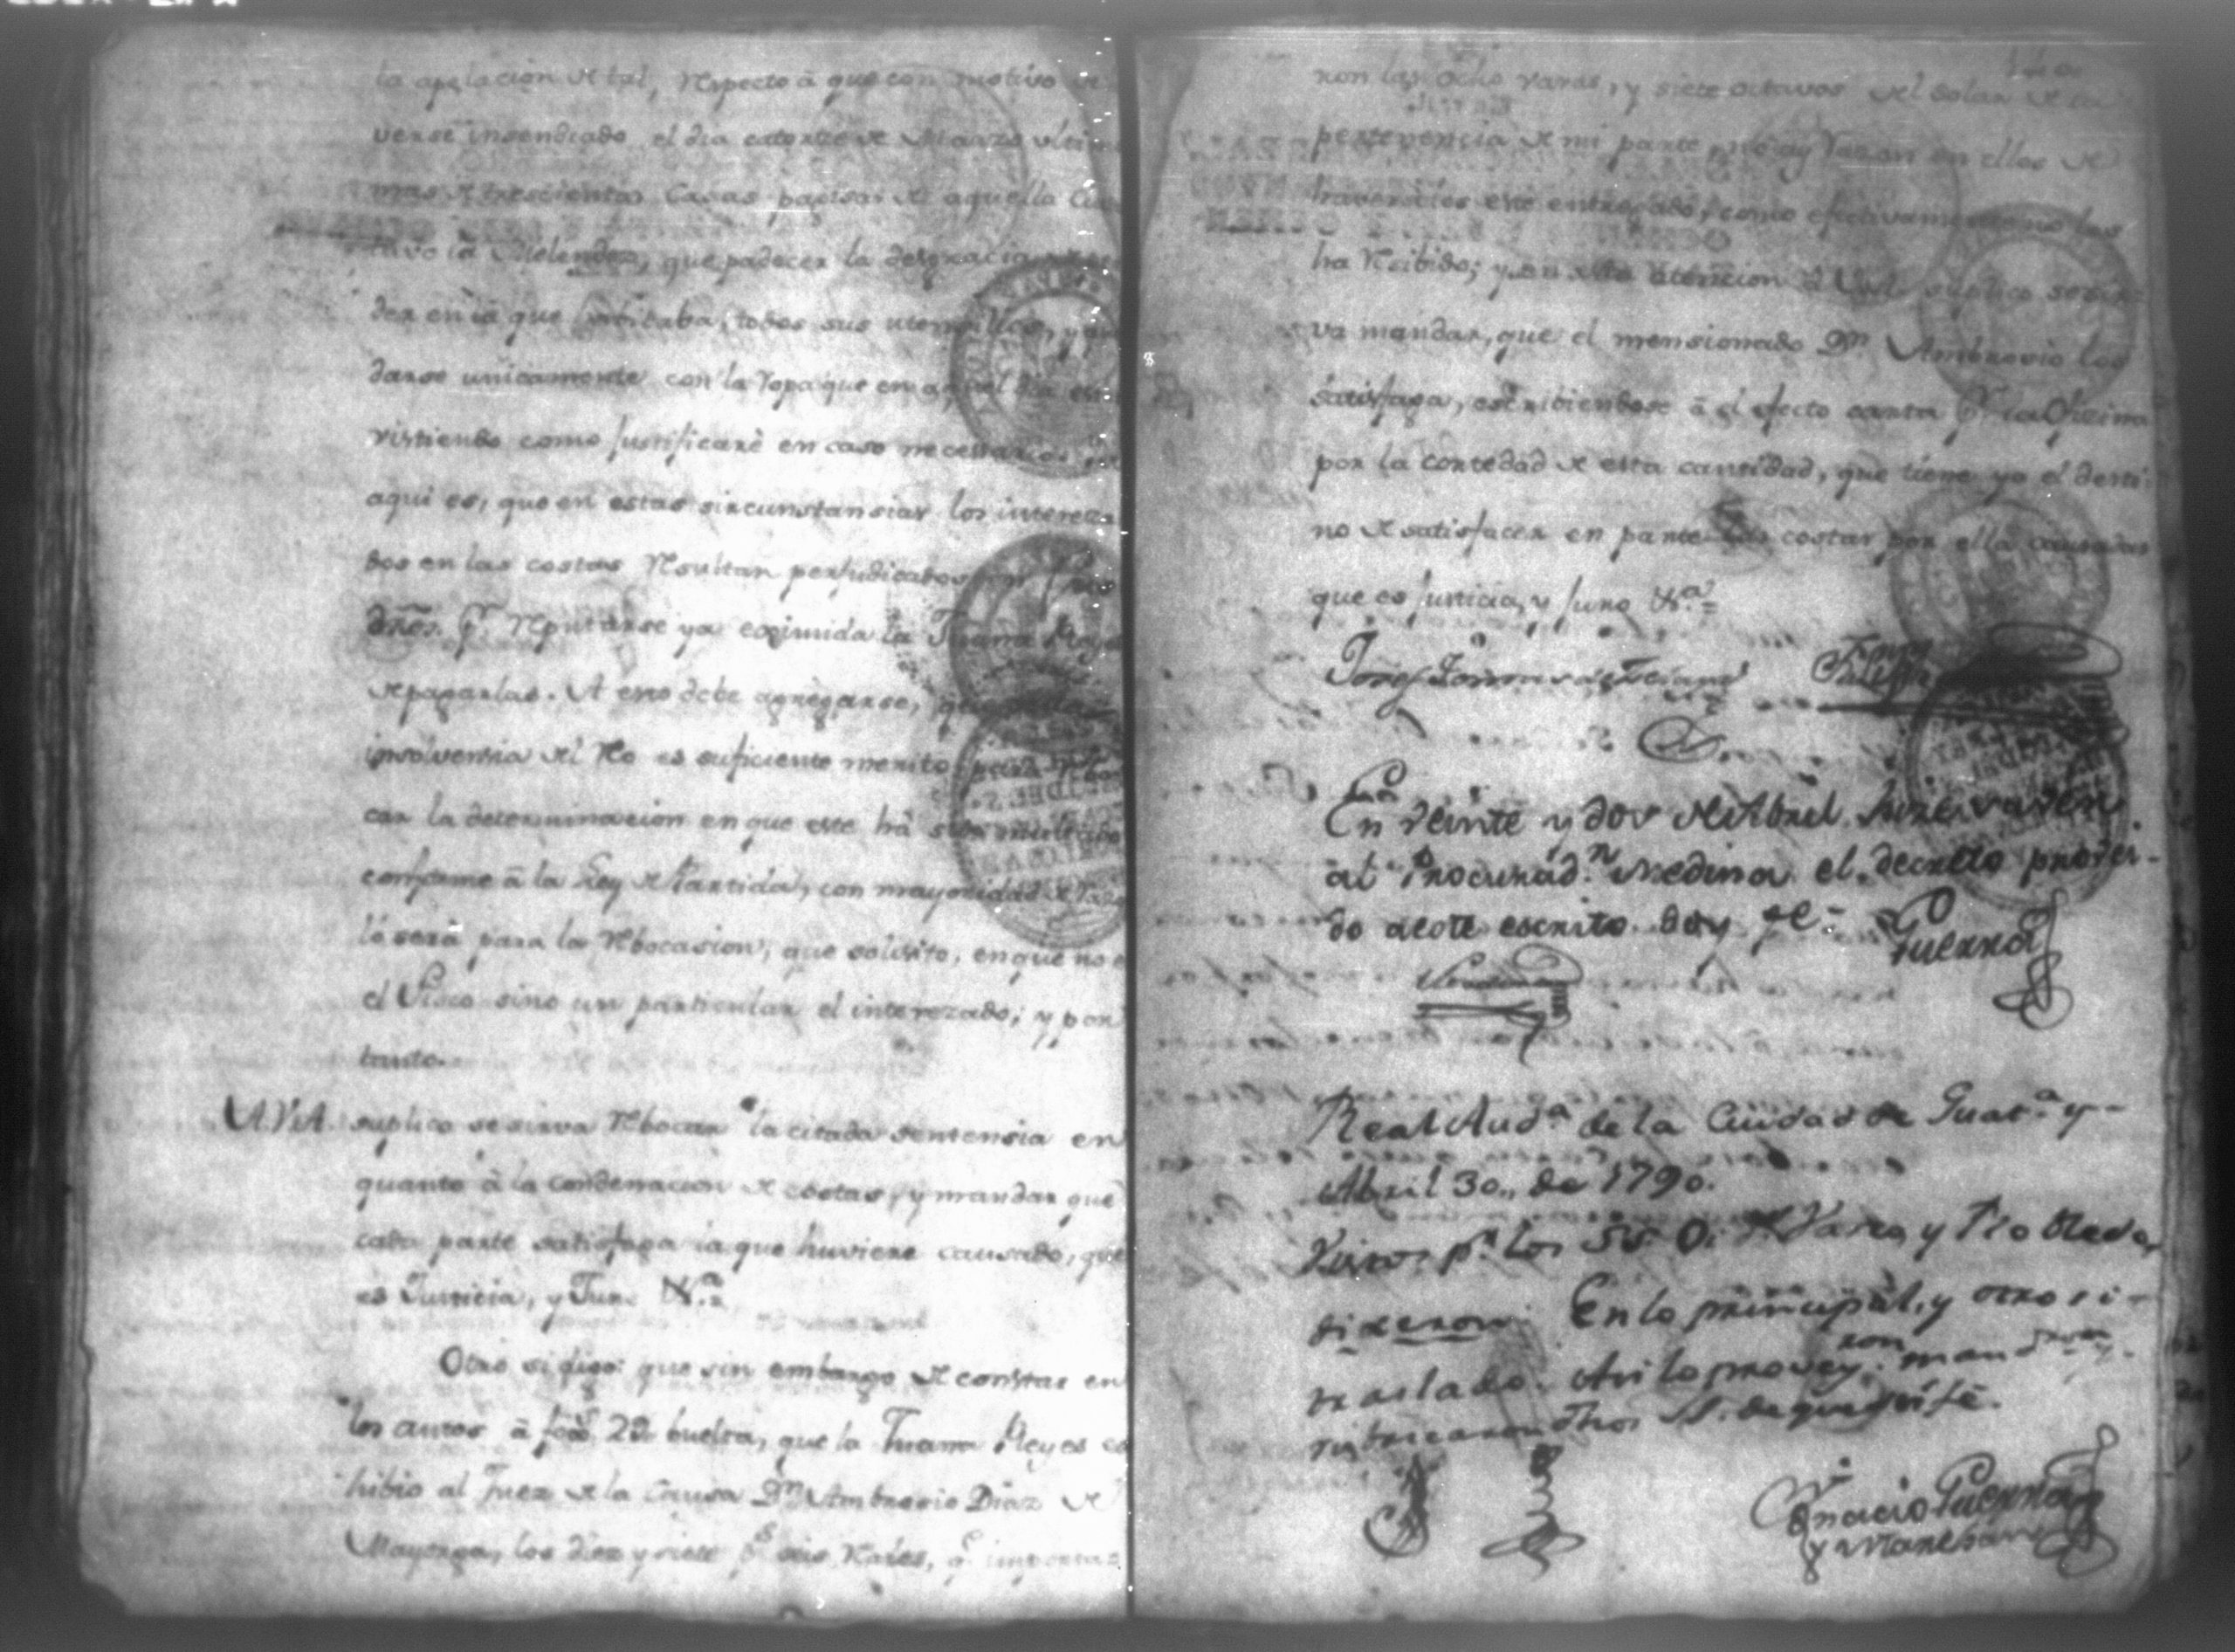 la apelacion de tal, respecto â que con motivo de
verse insendiado el dia catorze de Marzo ulti
mas de trescientas Casas pagisas de aquella Ciu
tuvo la Melendez, que padecer la desgracia
der en la que havitaba, todos sus utensilios, y que
darse unicamente con la ropa que en aquel dia est
vistiendo como justificarè en caso necessario;
aqui es, que en estas sircunstansias los intereza
dos en las costas resultan perjudicados
dhos. pr. reputarse ya eximida la Juana Reyes
de pagarlas. A esto debe agregarse, que
insolvensia del Reo es suficiente merito para rebo
car la determinacion en que este hà sido multado
conforme â la Ley de Partida, con mayoridad de razo
lô serà para la rebocasion, que solisito, en que no e
el Fisco sino un particular el interezado; y por
tanto.
A.V.A. suplico se sirva rebocar la citada sentensia en
quanto â la condenacion de costas, y mandar que
cada parte satisfaga la que huviere causado, que
es Justicia, y Juro &a.
Otro si digo: que sin embargo de constar en
los autos â foxs. 22 buelta, que la Juana Reyes ex
hibio al Juez de la Causa Dn. Ambrosio Diaz de
Mayorga, los diez y siete ps. seis reales, q. importar
ron las ocho varas, y siete octavos del solar de la
pertenencia de mi parte, no ay razon en ellos de
haverseles este entregado, como efectivamente no los
ha recibido; y en esta atencion â V.A. suplico se sir
va mandar, que el mensionado Dn. Ambrosio los
satisfaga, escribiendose â el efecto carta pr. la Ofisina
por la cortedad de esta cantidad, que tiene ya el desti
no de satisfacer en parte las costas por ella causadas
que es justicia, y juro &a.=
En veinte y dos de Abril hize saver
al Procurador. Medina el decreto provei-
do a este escrito doy fe:
Guerra
Real Auda. de la Ciudad de Guata. y
Abril 30,, de 1790.
Visto pr. los SS. O. y Robledo,
dixeron: En lo principal, y otro si
traslado. Asi lo proveyeron, mandaron y
rubricaron dhos SS. de que doy fè.
Ignacio Guerra
y Marchan